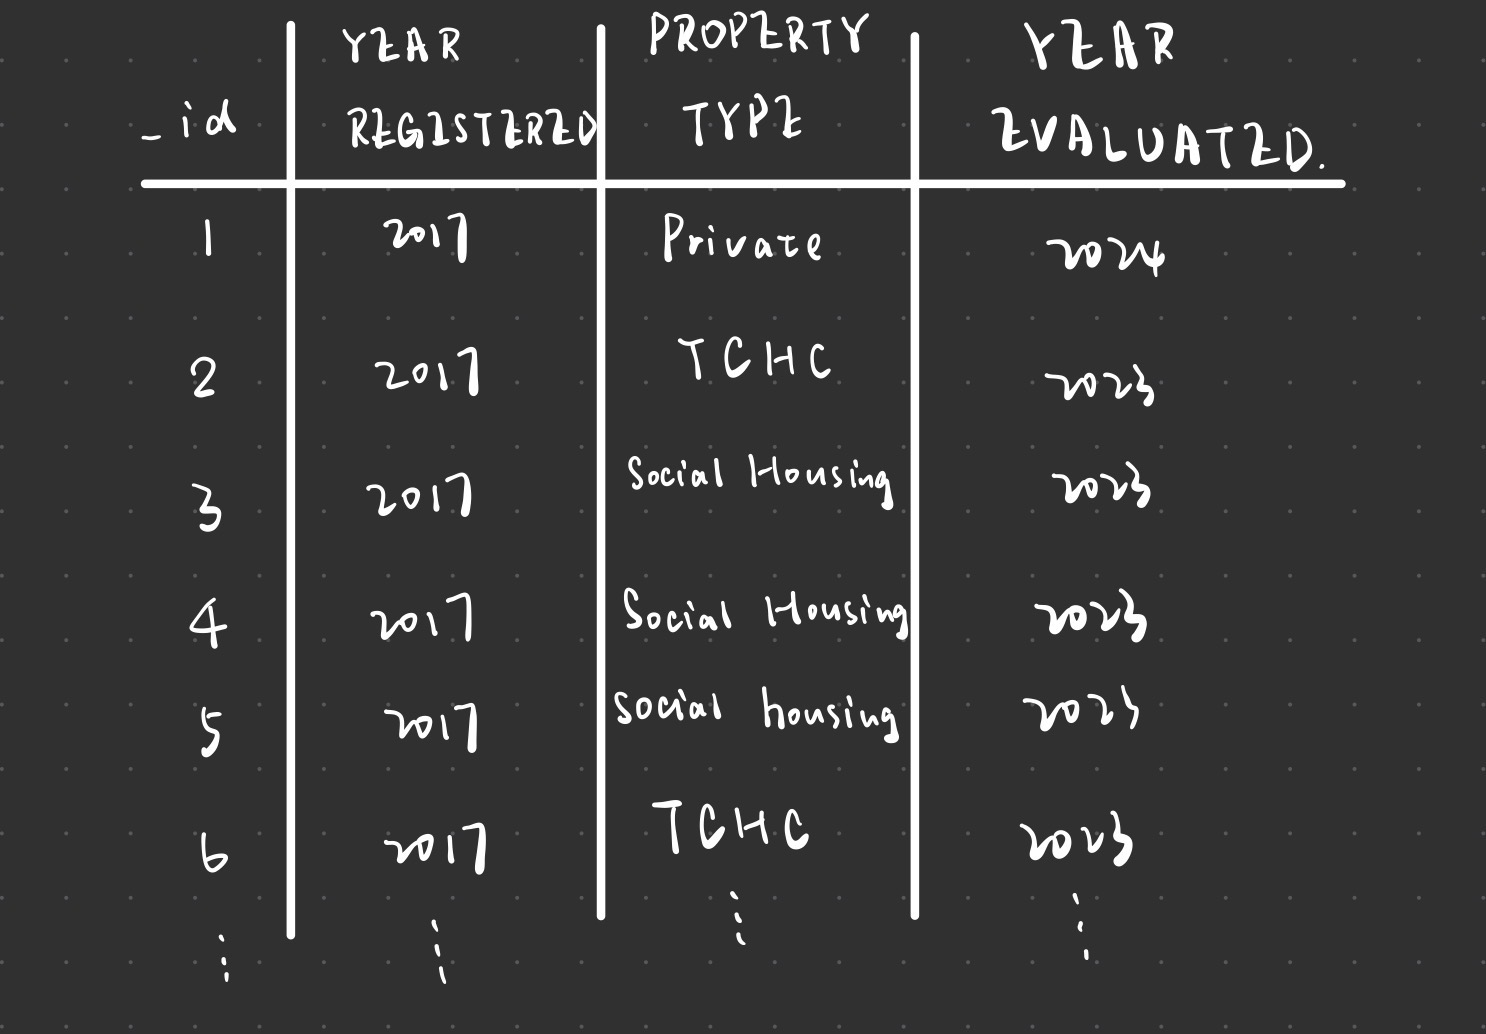 _id | YEAR REGISTERED | PROPERTY TYPE | YEAR EVALUATED.
1 | 2017 | Private | 2024
2 | 2017 | TCHC | 2023
3 | 2017 | Social Housing | 2023
4 | 2017 | Social Housing | 2023
5 | 2017 | Social housing | 2023
6 | 2017 | TCHC | 2023
⋮ | ⋮ | ⋮ | ⋮